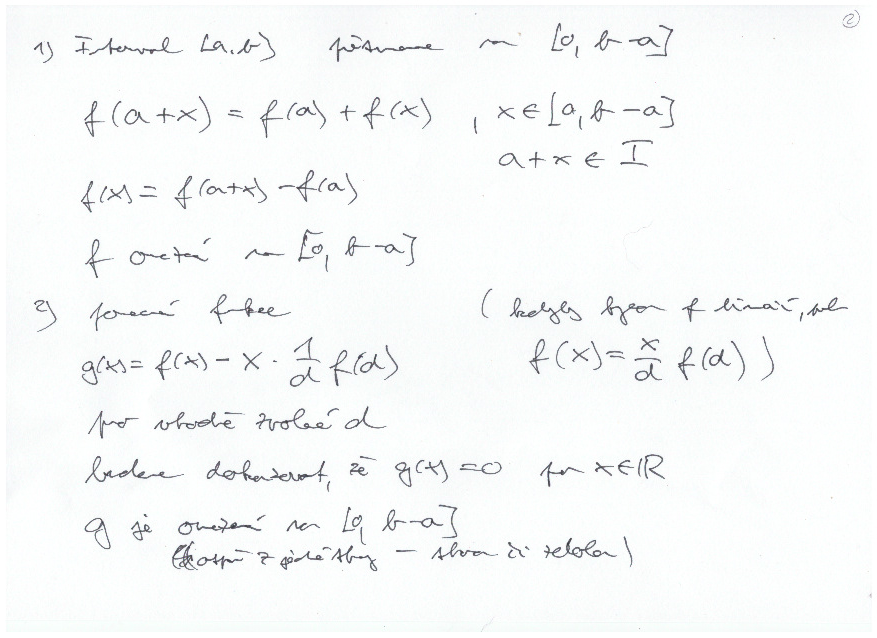 ②
1) Interval [a,b] přesuneme na [0, b-a]
f(a+x) = f(a) + f(x) , x ∈ [a, b-a]
a+x ∈ I
f(x) = f(a+x) - f(a)
f omezená na [0, b-a]
2) pomocná funkce ( kdyby byla f lineární,
g(x) = f(x) - x · 1/d f(d) f(x) = x/d f(d) )
pro vhodně zvolené d
budeme dokazovat, že g(x) = 0 pro x ∈ ℝ
g je omezená na [0, b-a]
z jedné strany — shora či zdola)